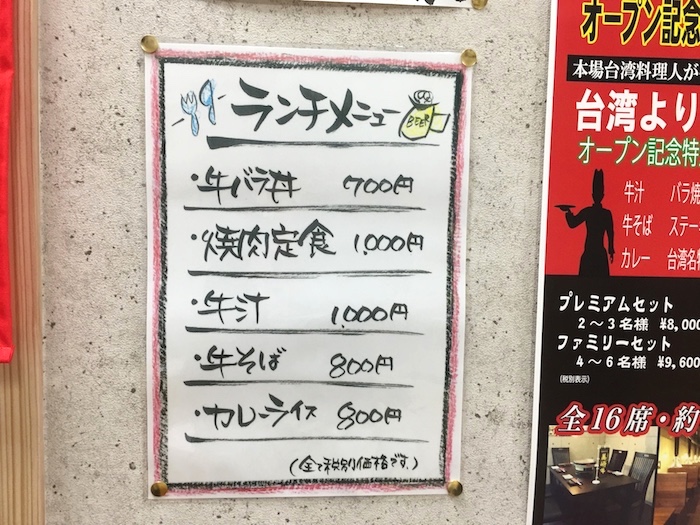 ランチメニュー
BEER
・牛バラ丼 700円
・焼肉定食 1,000円
・牛汁 1,000円
・牛そば 800円
・カレーライス 800円
(全て税別価格です。)
オープン記念
本場台湾料理人が
台湾より
オープン記念特
牛汁 バラ焼
牛そば ステー
カレー 台湾名
プレミアムセット
2〜3名様 ¥8,00
ファミリーセット
4〜6名様 ¥9,600
(税別表示)
全16席・約